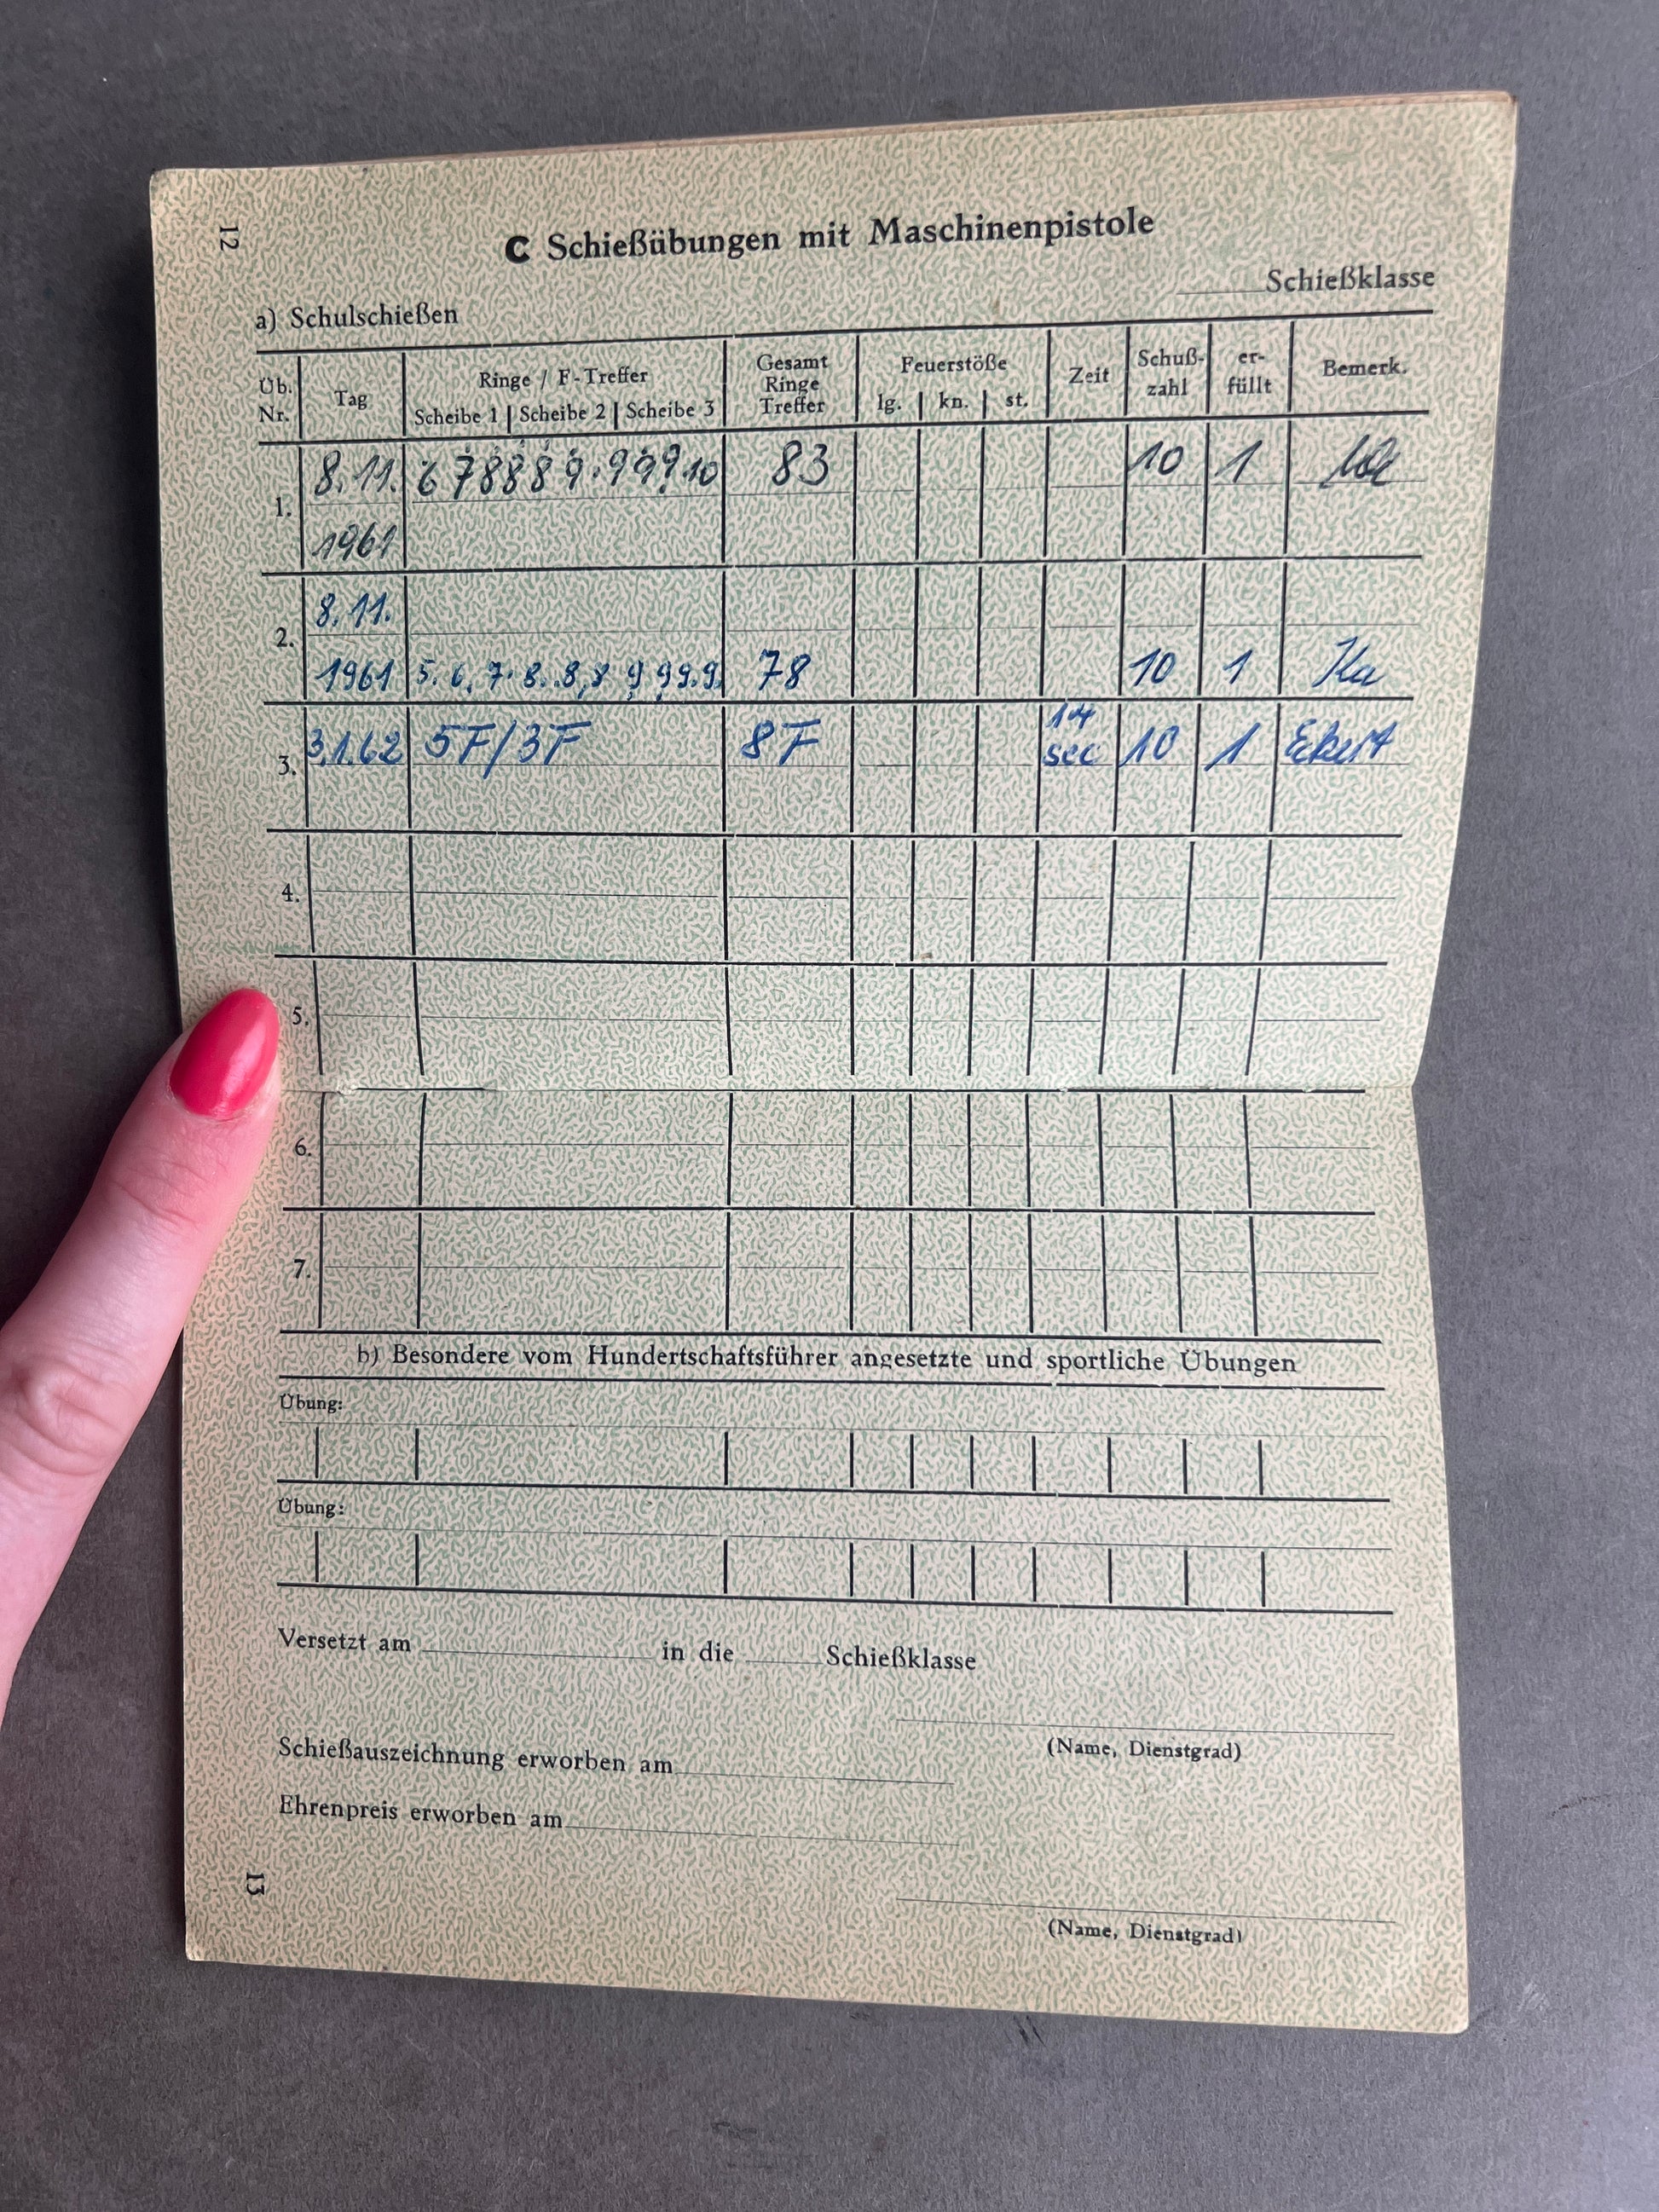 12
C Schießübungen mit Maschinenpistole
Schießklasse
a) Schulschießen
Üb. Nr. Tag Ringe / F-Treffer Scheibe 1 | Scheibe 2 | Scheibe 3 Gesamt Ringe Treffer Feuerstöße lg. | kn. | st. Zeit Schuß-zahl er-füllt Bemerk.
1. 8.11. 6 7 8 8 8 9. 9 9 9 10 83 10 1
1961
2. 8.11.
1961 5. 6. 7. 8. 8, 8 9 9 9. 9. 78 10 1
3. 3.1.62 5F/3F 8F 14 sec 10 1
4.
5.
6.
7.
b) Besondere vom Hundertschaftsführer angesetzte und sportliche Übungen
Übung:
Übung:
Versetzt am in die Schießklasse
(Name, Dienstgrad)
Schießauszeichnung erworben am
Ehrenpreis erworben am
13
(Name, Dienstgrad)